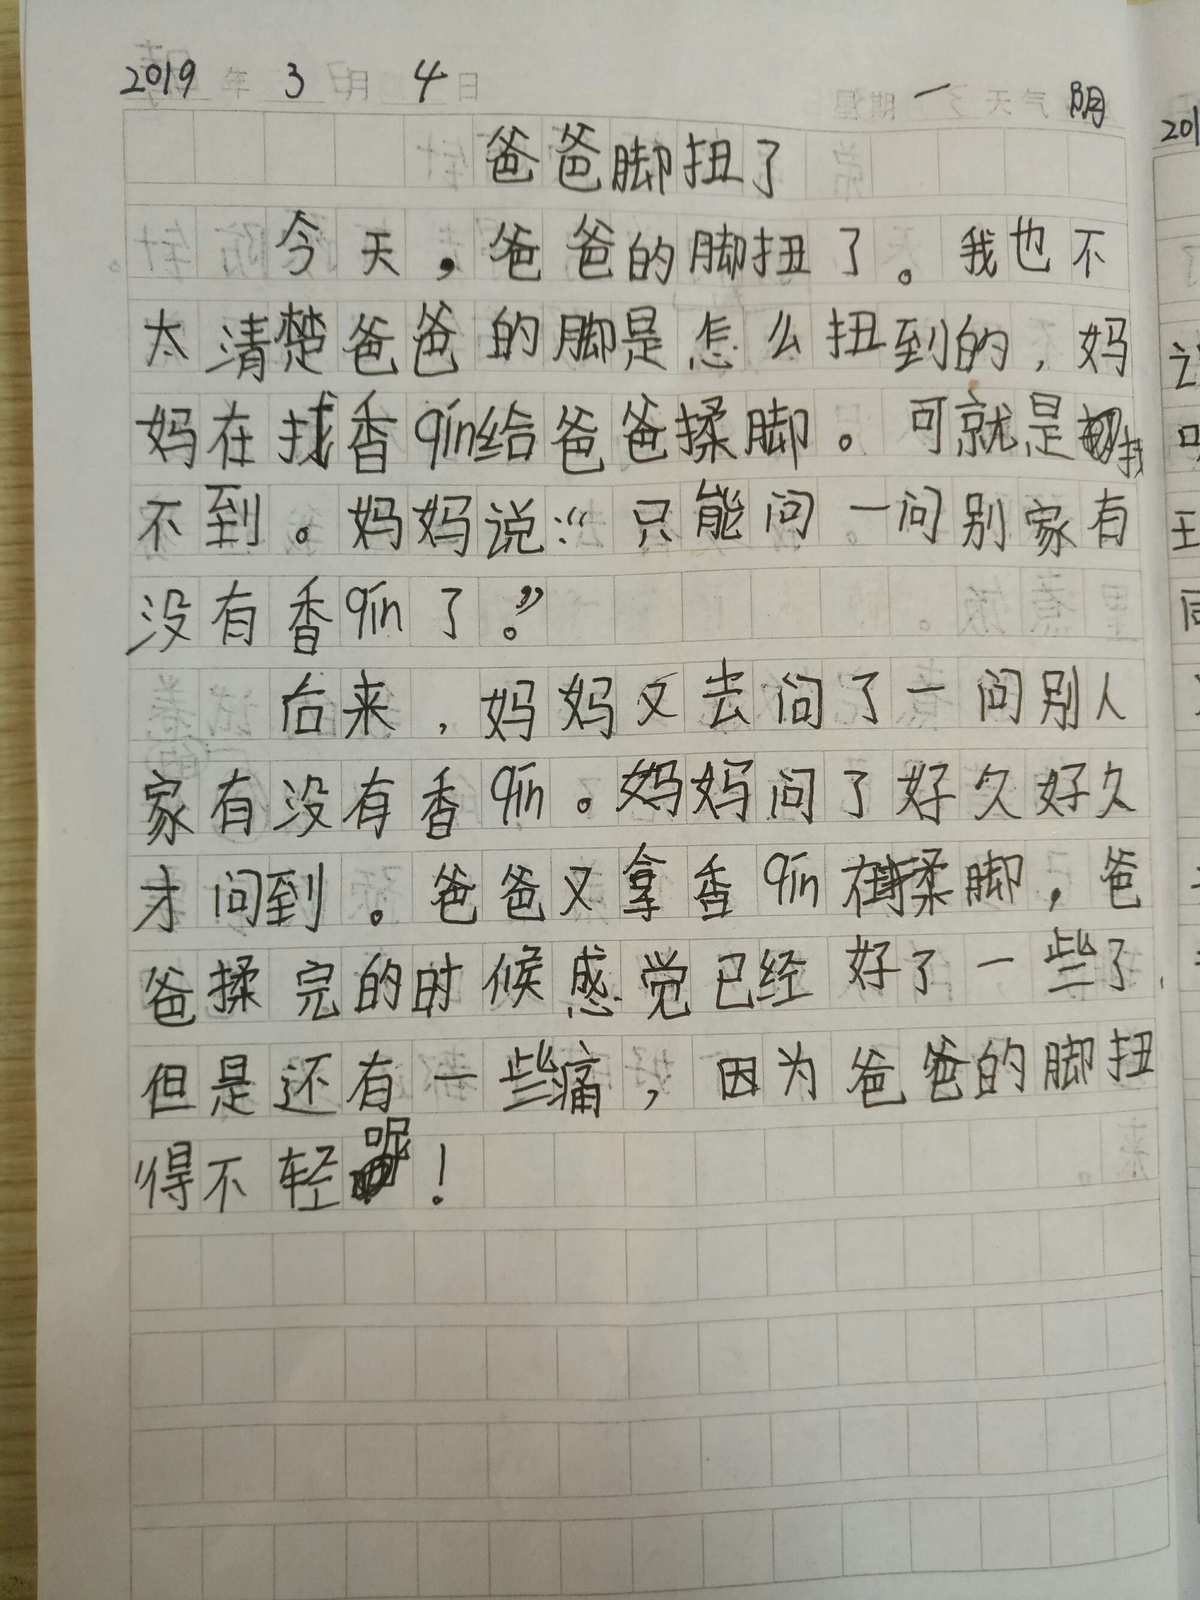 2019年3月4日 星期一 天气阴
爸爸脚扭了
今天，爸爸的脚扭了。我也不
太清楚爸爸的脚是怎么扭到的，妈
妈在找香qin给爸爸揉脚。可就是找
不到。妈妈说：“只能问一问别家有
没有香qin了。”
后来，妈妈又去问了一问别人
家有没有香qin。妈妈问了好久好久
才问到。爸爸又拿香qin在揉脚，爸
爸揉完的时候感觉已经好了一些了，
但是还有一些痛，因为爸爸的脚扭
得不轻呢！
201